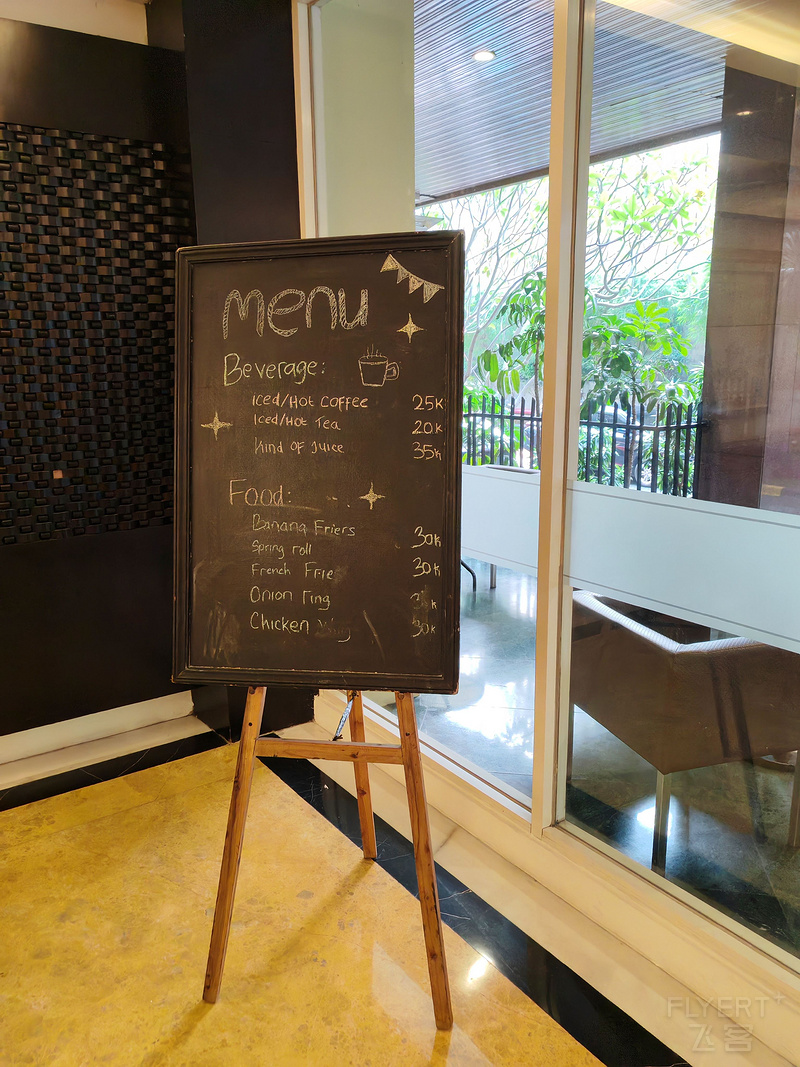 menu
Beverage:
Iced/Hot Coffee 25K
Iced/Hot Tea 20K
Kind OF Juice 35K
Food:
Banana Friers 30K
Spring roll
French Frie 30K
Onion ring
Chicken 30K
FLYERT
飞客